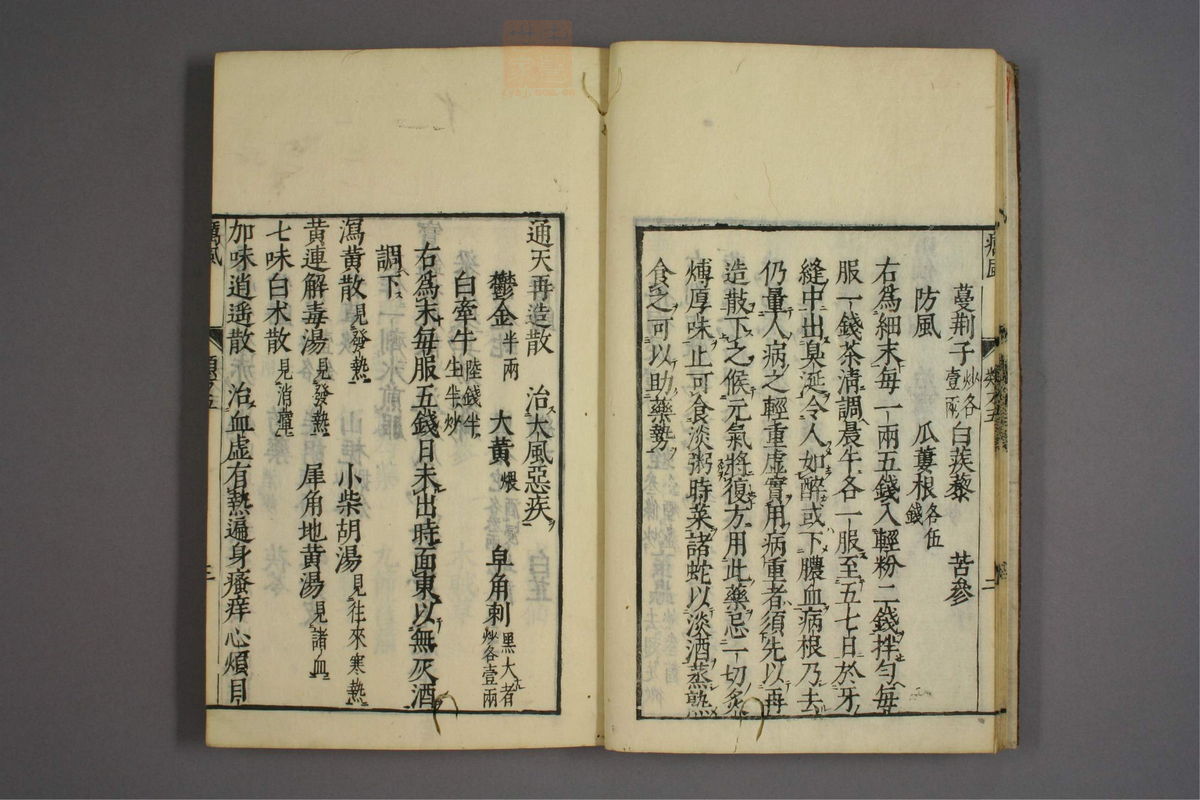 蔓荆子炒各壹兩白蒺藜 苦參
防風 瓜蔞根各伍錢
右爲細末每一兩五錢入輕粉二錢拌勻每
服一錢茶清調晨午各一服至五七日於牙
縫中出臭涎令人如醉或下膿血病根乃去
仍量人病之輕重虛實用病重者須先以再
造散下之候元氣將復方用此藥忌一切炙
煿厚味止可食淡粥時菜諸蛇以淡酒蒸熟
食之可以助藥勢
通天再造散 治大風惡疾
鬱金半兩 大黃煨 皁角刺黑大者炒各壹兩
白牽牛陸錢半生半炒
右爲末每服五錢日未出時面東以無灰酒
調下
瀉黃散見發熱 小柴胡湯見往來寒熱
黃連解毒湯見發熱 犀角地黃湯見諸血
七味白术散見消癉
加味逍遥散 治血虛有熱遍身瘙痒心煩目
癘風 三